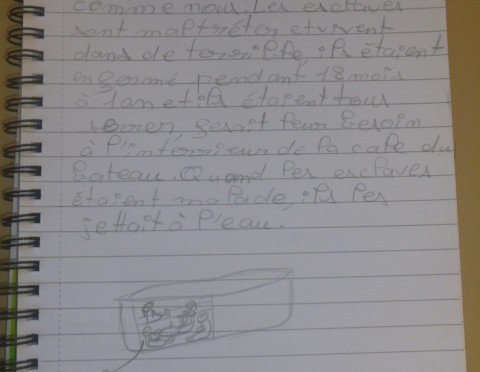 comme nous. Les esclaves
sont maltréter et vivent
dans de terrible, ils étaient
enfermé pendant 18 mois
à 1 an et ils étaient tous
serrer, fesait leur besoin
à l'intérrieur de la cale du
bateau. Quand les esclaves
étaient malade, ils les
jettait à l'eau.